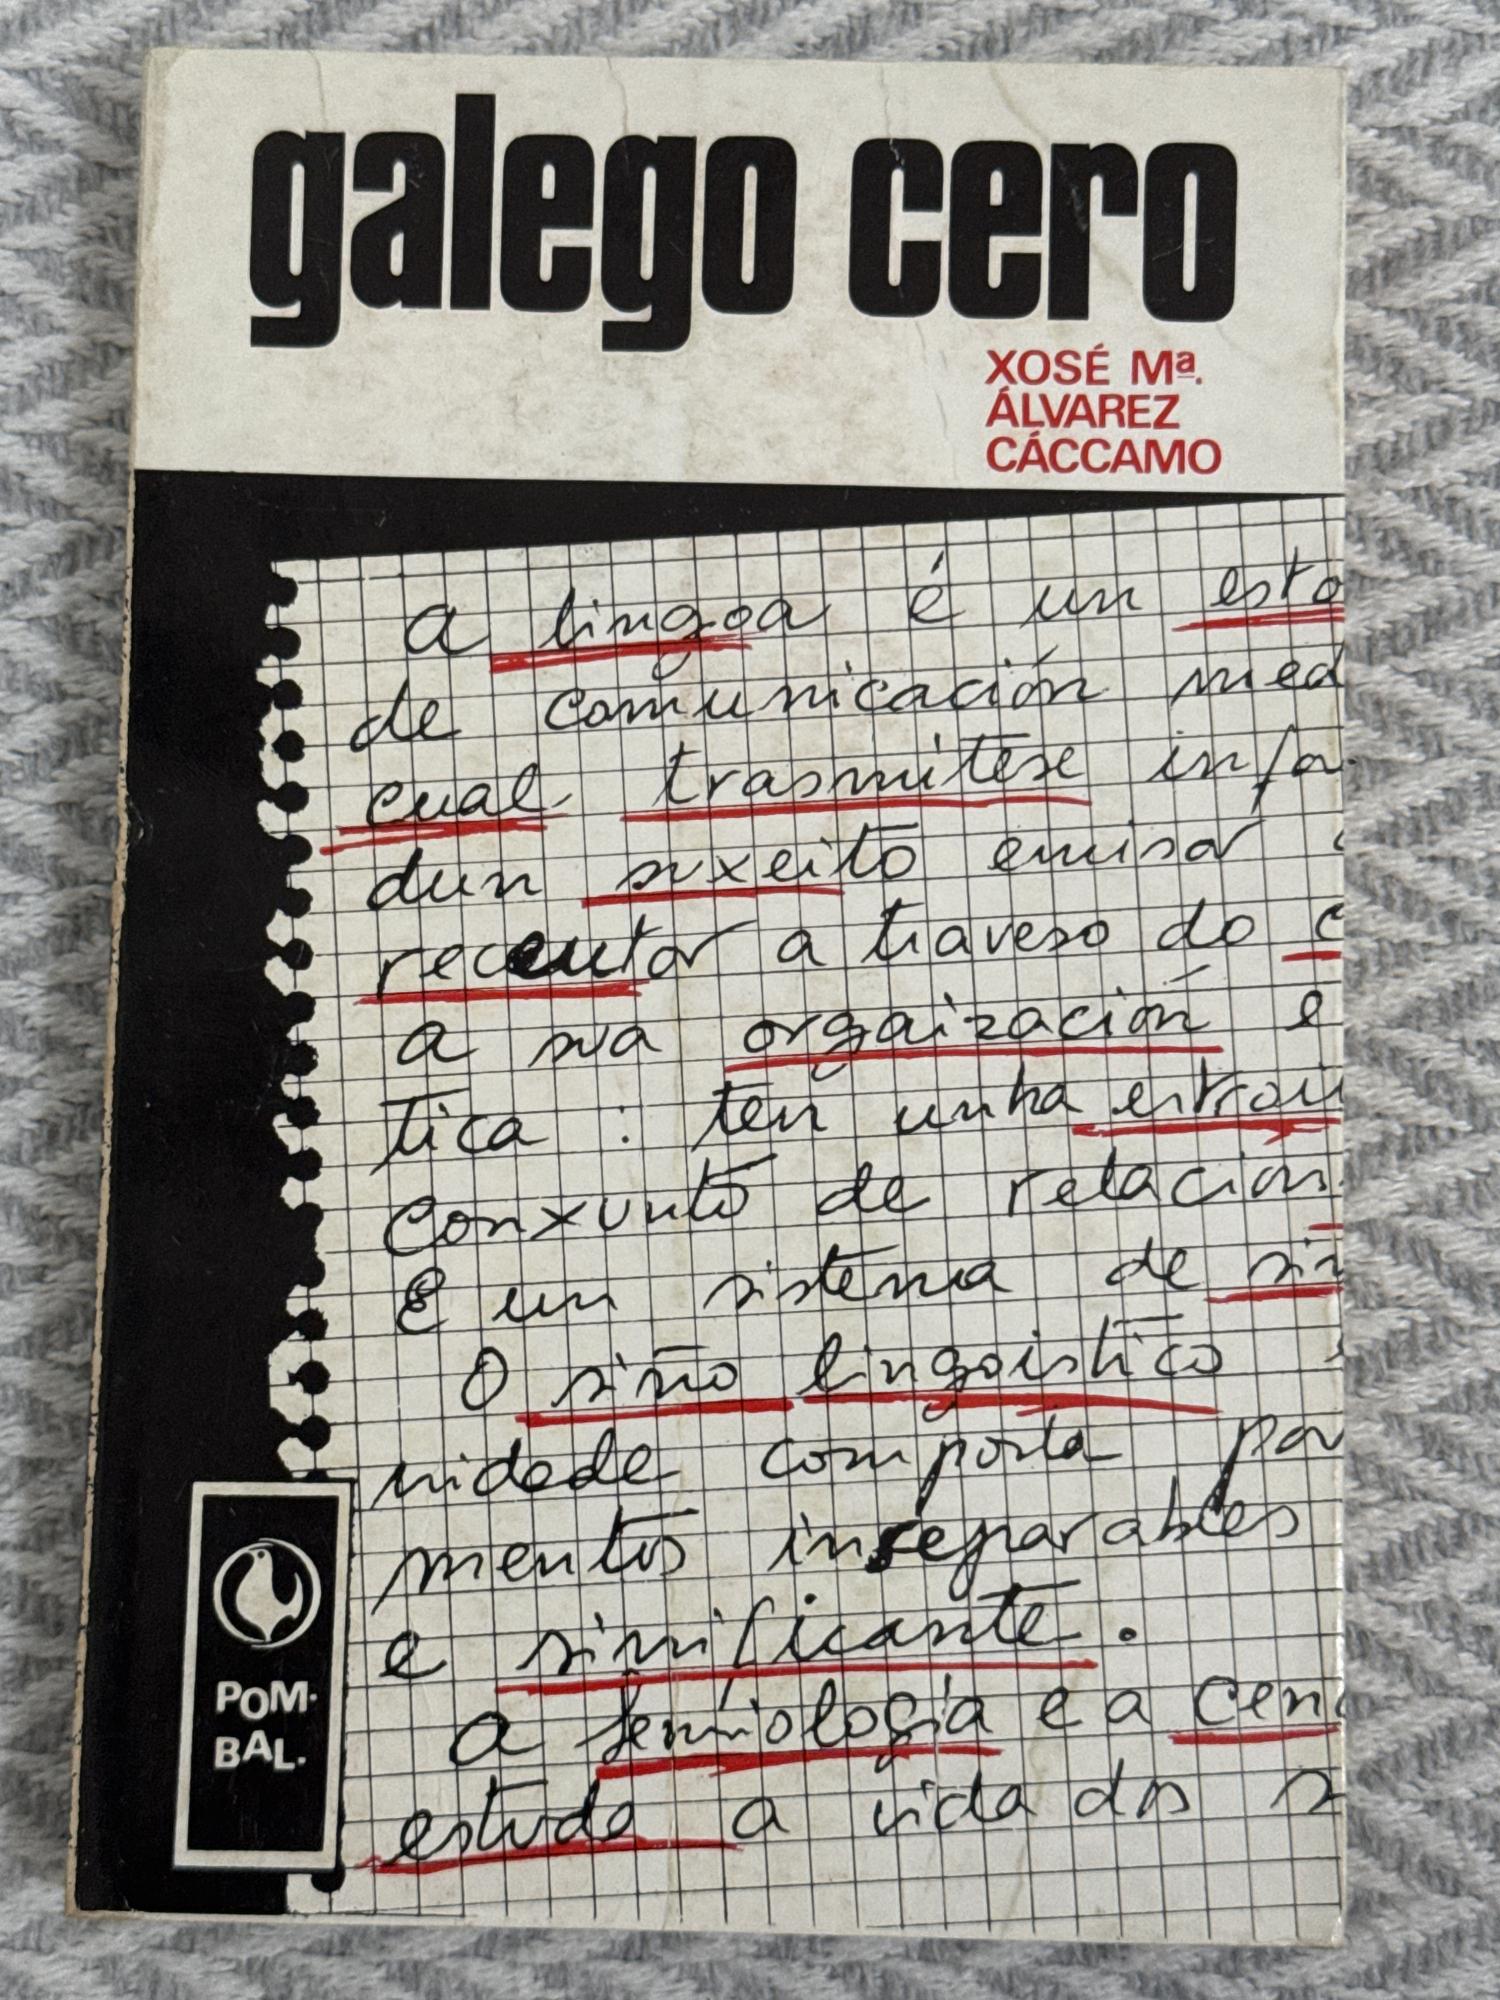 galego cero
XOSÉ Mª.
ÁLVAREZ
CÁCCAMO
a lingoa é un esto
de comunicación med
cual trasmítese infor
dun suxeito emisor
receutor a traveso do c
a sua orgaización e
tica : ten unha estroi
conxunto de relacións
E un sistema de siñ
O siño lingoístico
nidade composta por
mentos inseparables
e sinificante.
a semiología e a cenc
estuda a vida dos s
POM-
BAL.